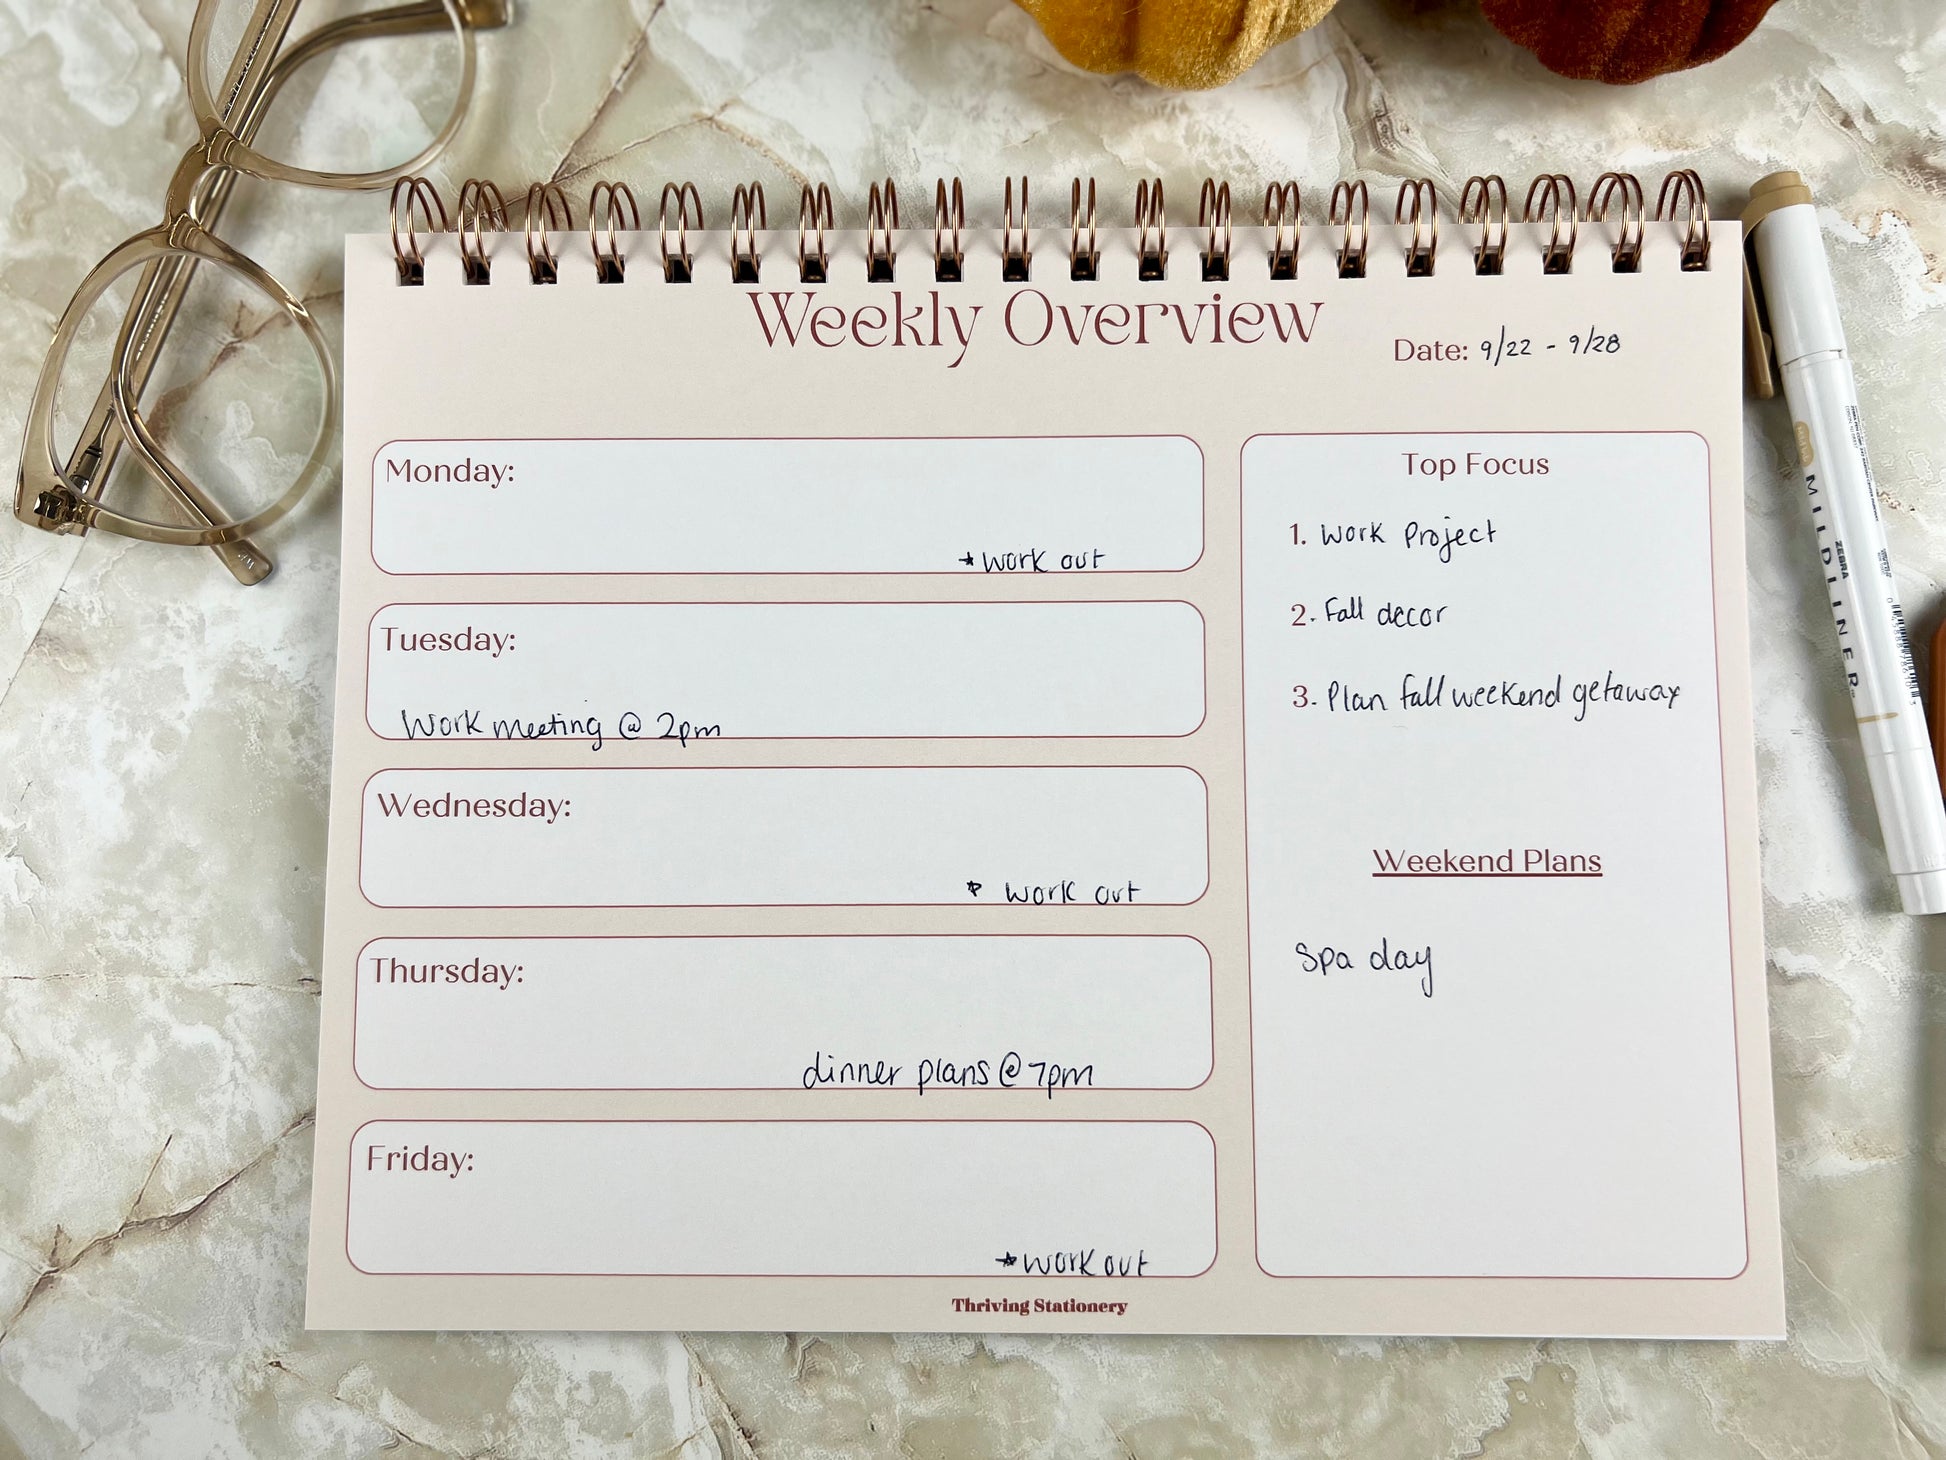 Weekly Overview
Date: 9/22 - 9/28
Monday:
*work out
Tuesday:
Work meeting @ 2pm
Wednesday:
* work out
Thursday:
dinner plans @ 7pm
Friday:
*work out
Top Focus
1. Work Project
2. Fall decor
3. Plan fall weekend getaway
Weekend Plans
Spa day
Thriving Stationery
ZEBRA
MILDLINER